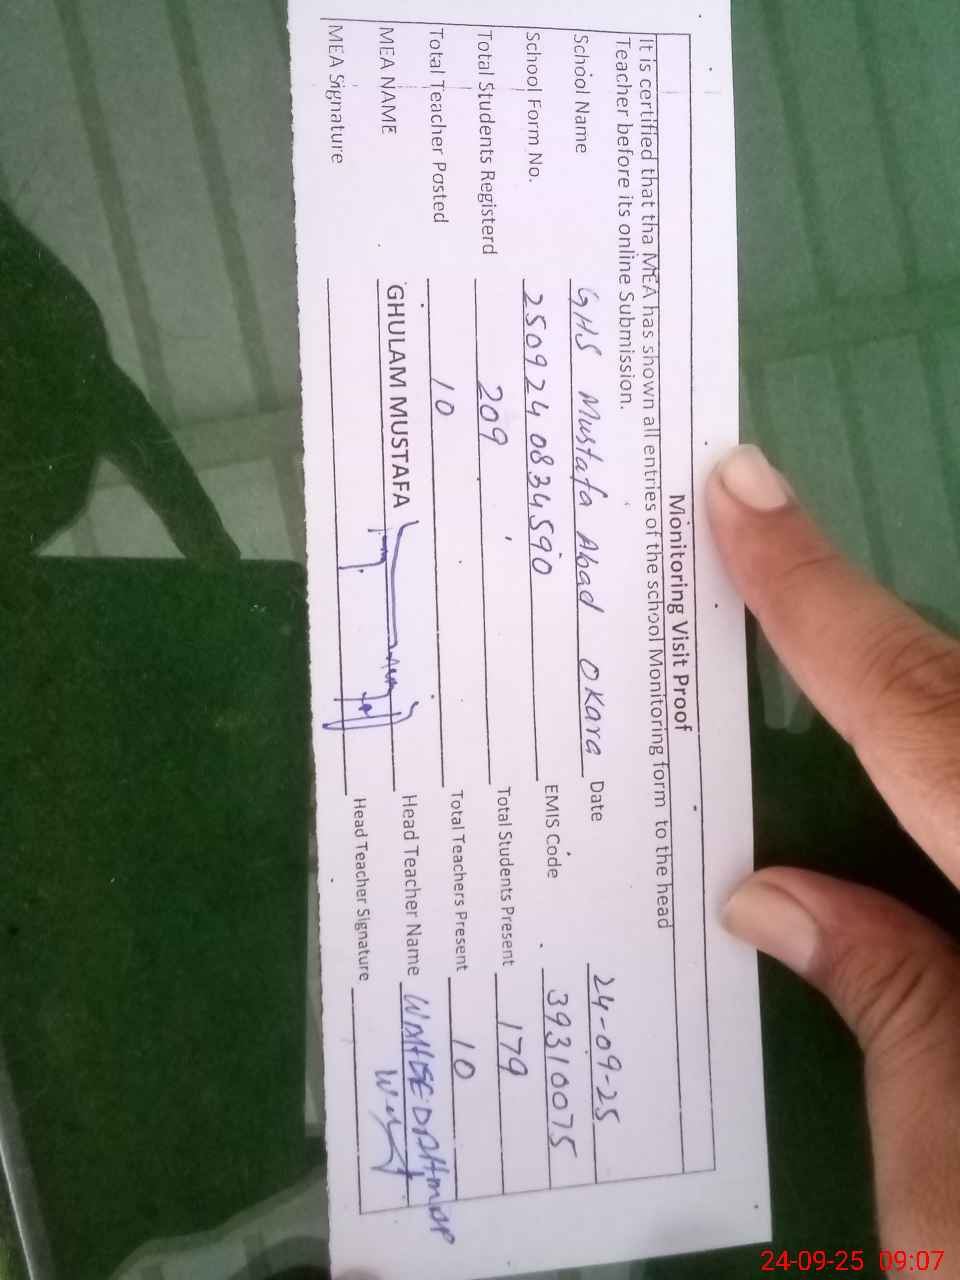 Monitoring Visit Proof
It is certified that tha MEA has shown all entries of the school Monitoring form to the head
Teacher before its online Submission.
School Name GHS Mustafa Abad Okara Date 24-09-25
School Form No. 250924 0834590 EMIS Code 39310075
Total Students Registerd 209 Total Students Present 179
Total Teacher Posted 10 Total Teachers Present 10
MEA NAME GHULAM MUSTAFA Head Teacher Name WAHEED AHMAD
MEA Signature Head Teacher Signature
24-09-25 09:07